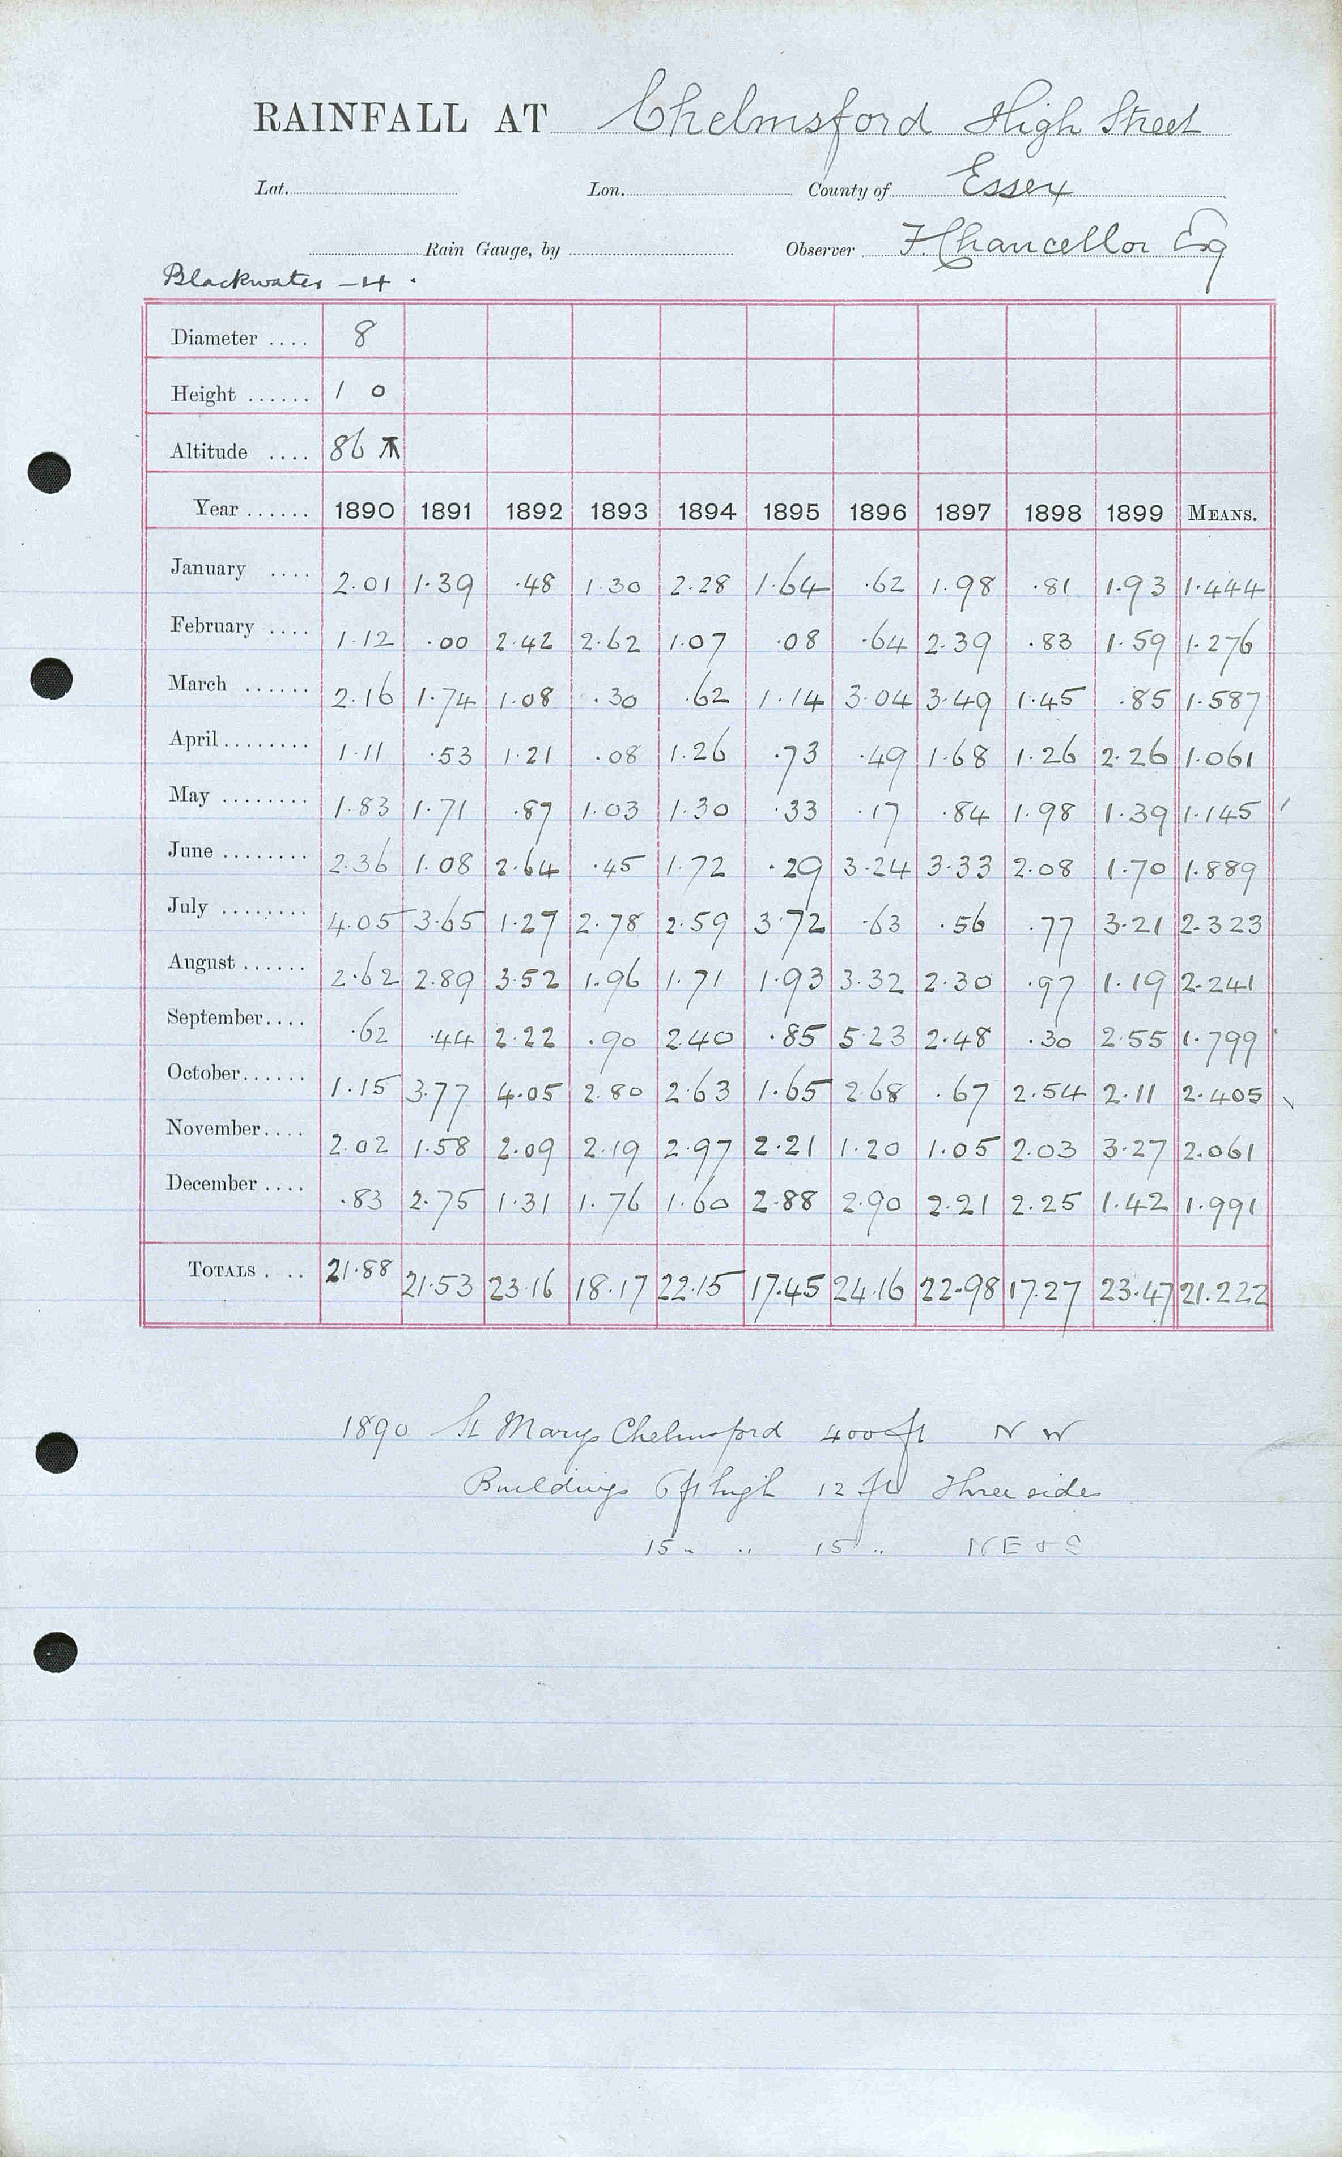 RAINFALL AT Chelmsford High Street
Lat. Lon. County of Essex
Rain Gauge, by Observer F. Chancellor Esq
Blackwater – 4 .
Diameter .... 8
Height ...... 1 0
Altitude .... 86
Year ...... 1890 1891 1892 1893 1894 1895 1896 1897 1898 1899 MEANS.
January .... 2.01 1.39 .48 1.30 2.28 1.64 .62 1.98 .81 1.93 1.444
February .... 1.12 .00 2.42 2.62 1.07 .08 .64 2.39 .83 1.59 1.276
March ...... 2.16 1.74 1.08 .30 .62 1.14 3.04 3.49 1.45 .85 1.587
April ........ 1.11 .53 1.21 .08 1.26 .73 .49 1.68 1.26 2.26 1.061
May ........ 1.83 1.71 .87 1.03 1.30 .33 .17 .84 1.98 1.39 1.145
June ........ 2.36 1.08 2.64 .45 1.72 .29 3.24 3.33 2.08 1.70 1.889
July ........ 4.05 3.65 1.27 2.78 2.59 3.72 .63 .56 .77 3.21 2.323
August ...... 2.62 2.89 3.52 1.96 1.71 1.93 3.32 2.30 .97 1.19 2.241
September.... .62 .44 2.22 .90 2.40 .85 5.23 2.48 .30 2.55 1.799
October...... 1.15 3.77 4.05 2.80 2.63 1.65 2.68 .67 2.54 2.11 2.405
November.... 2.02 1.58 2.09 2.19 2.97 2.21 1.20 1.05 2.03 3.27 2.061
December .... .83 2.75 1.31 1.76 1.60 2.88 2.90 2.21 2.25 1.42 1.991
TOTALS . .. 21.88 21.53 23.16 18.17 22.15 17.45 24.16 22.98 17.27 23.47 21.222
1890 St Marys Chelmsford 400 ft N W
Buildings 6 ft high 12 ft Three sides
15 " " 15 " N E & S